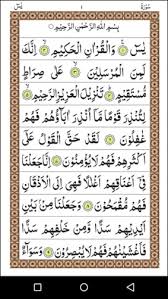 سُوْرَةُ ١ يٰسٓ
بِسْمِ اللّٰهِ الرَّحْمٰنِ الرَّحِيْمِ
يٰسٓ وَالْقُرْاٰنِ الْحَكِيْمِ اِنَّكَ
لَمِنَ الْمُرْسَلِيْنَ عَلٰى صِرَاطٍ
مُّسْتَقِيْمٍ تَنْزِيْلَ الْعَزِيْزِ الرَّحِيْمِ
لِتُنْذِرَ قَوْمًا مَّاۤ اُنْذِرَ اٰبَآؤُهُمْ فَهُمْ
غٰفِلُوْنَ لَقَدْ حَقَّ الْقَوْلُ عَلٰۤى
اَكْثَرِهِمْ فَهُمْ لَا يُؤْمِنُوْنَ اِنَّا جَعَلْنَا
فِيْۤ اَعْنَاقِهِمْ اَغْلٰلًا فَهِيَ اِلَى الْاَذْقَانِ
فَهُمْ مُّقْمَحُوْنَ وَجَعَلْنَا مِنْۢ بَيْنِ
اَيْدِيْهِمْ سَدًّا وَّمِنْ خَلْفِهِمْ سَدًّا
فَاَغْشَيْنٰهُمْ فَهُمْ لَا يُبْصِرُوْنَ وَسَوَآءٌ